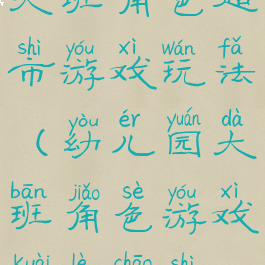 大班角色超
shì yóu xì wán fǎ
市游戏玩法
yòu ér yuán dà
（幼儿园大
bān jiǎo sè yóu xì
班角色游戏
kuài lè chāo shì